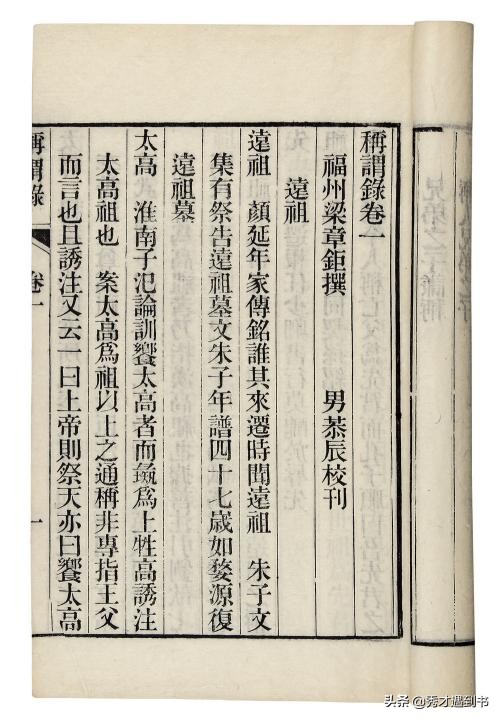 稱謂錄卷一
福州梁章鉅撰 男恭辰校刊
遠祖
遠祖 顏延年家傳銘誰其來遷時聞遠祖 朱子文
集有祭告遠祖墓文朱子年譜四十七歲如婺源復
遠祖墓
太高 淮南子氾論訓饗太高者而彘爲上牲高誘注
太高祖也 案太高爲祖以上之通稱非專指王父
而言也且誘注又云一曰上帝則祭天亦曰饗太高
稱謂錄 卷一 一
头条 @秀才遇到书